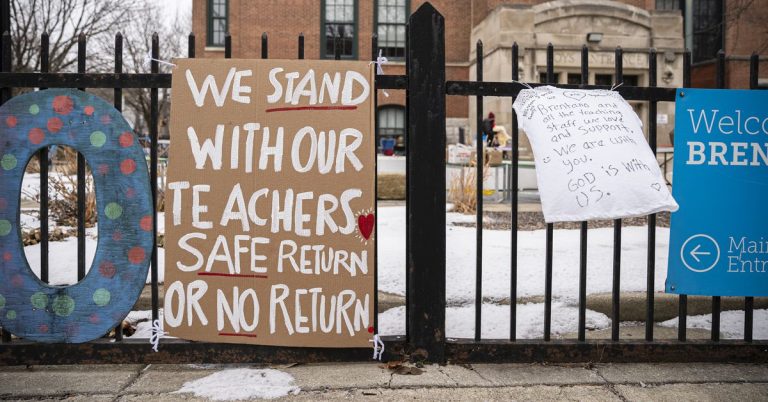 O
WE STAND
WITH OUR
TEACHERS
SAFE RETURN
OR NO RETURN
BOYS ENTRANCE
Brentano and
all the teaching
staff we love
and support.
We are with
you.
GOD is with
US.
Welco
BREN
Main
Entr